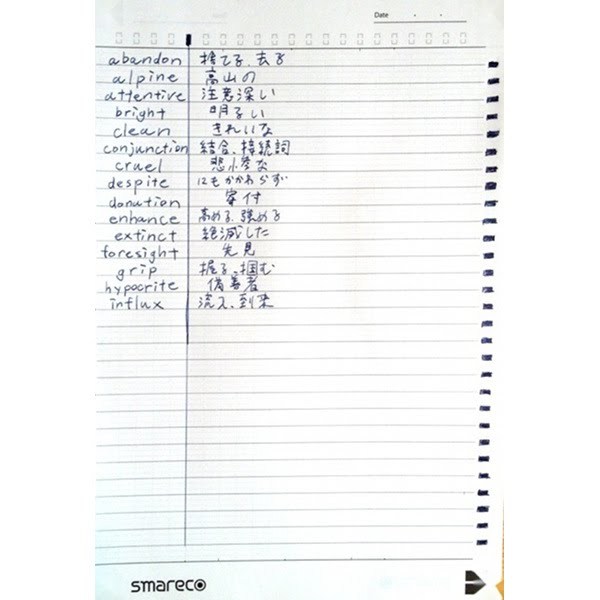 Date
abandon 捨てる、去る
alpine 高山の
attentive 注意深い
bright 明るい
clean きれいな
conjunction 結合、接続詞
cruel 悲惨な
despite にもかかわらず
donution 寄付
enhance 高める、強める
extinct 絶滅した
foresight 先見
grip 握る、掴む
hypocrite 偽善者
influx 流入、到来
smareco